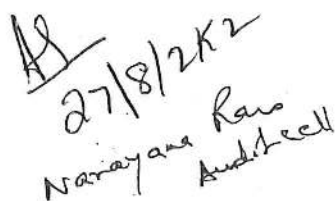 27/8/2K2
Narayana Rao
Audit cell